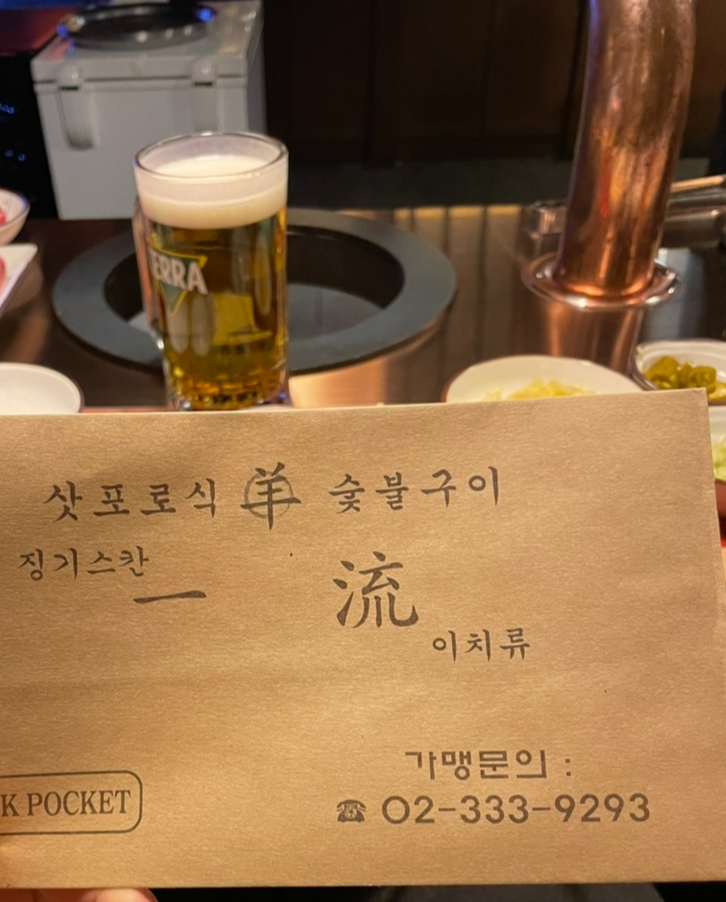 ERRA
삿포로식 羊 숯불구이
징기스칸
一 流
이치류
가맹문의 :
☎ 02-333-9293
K POCKET